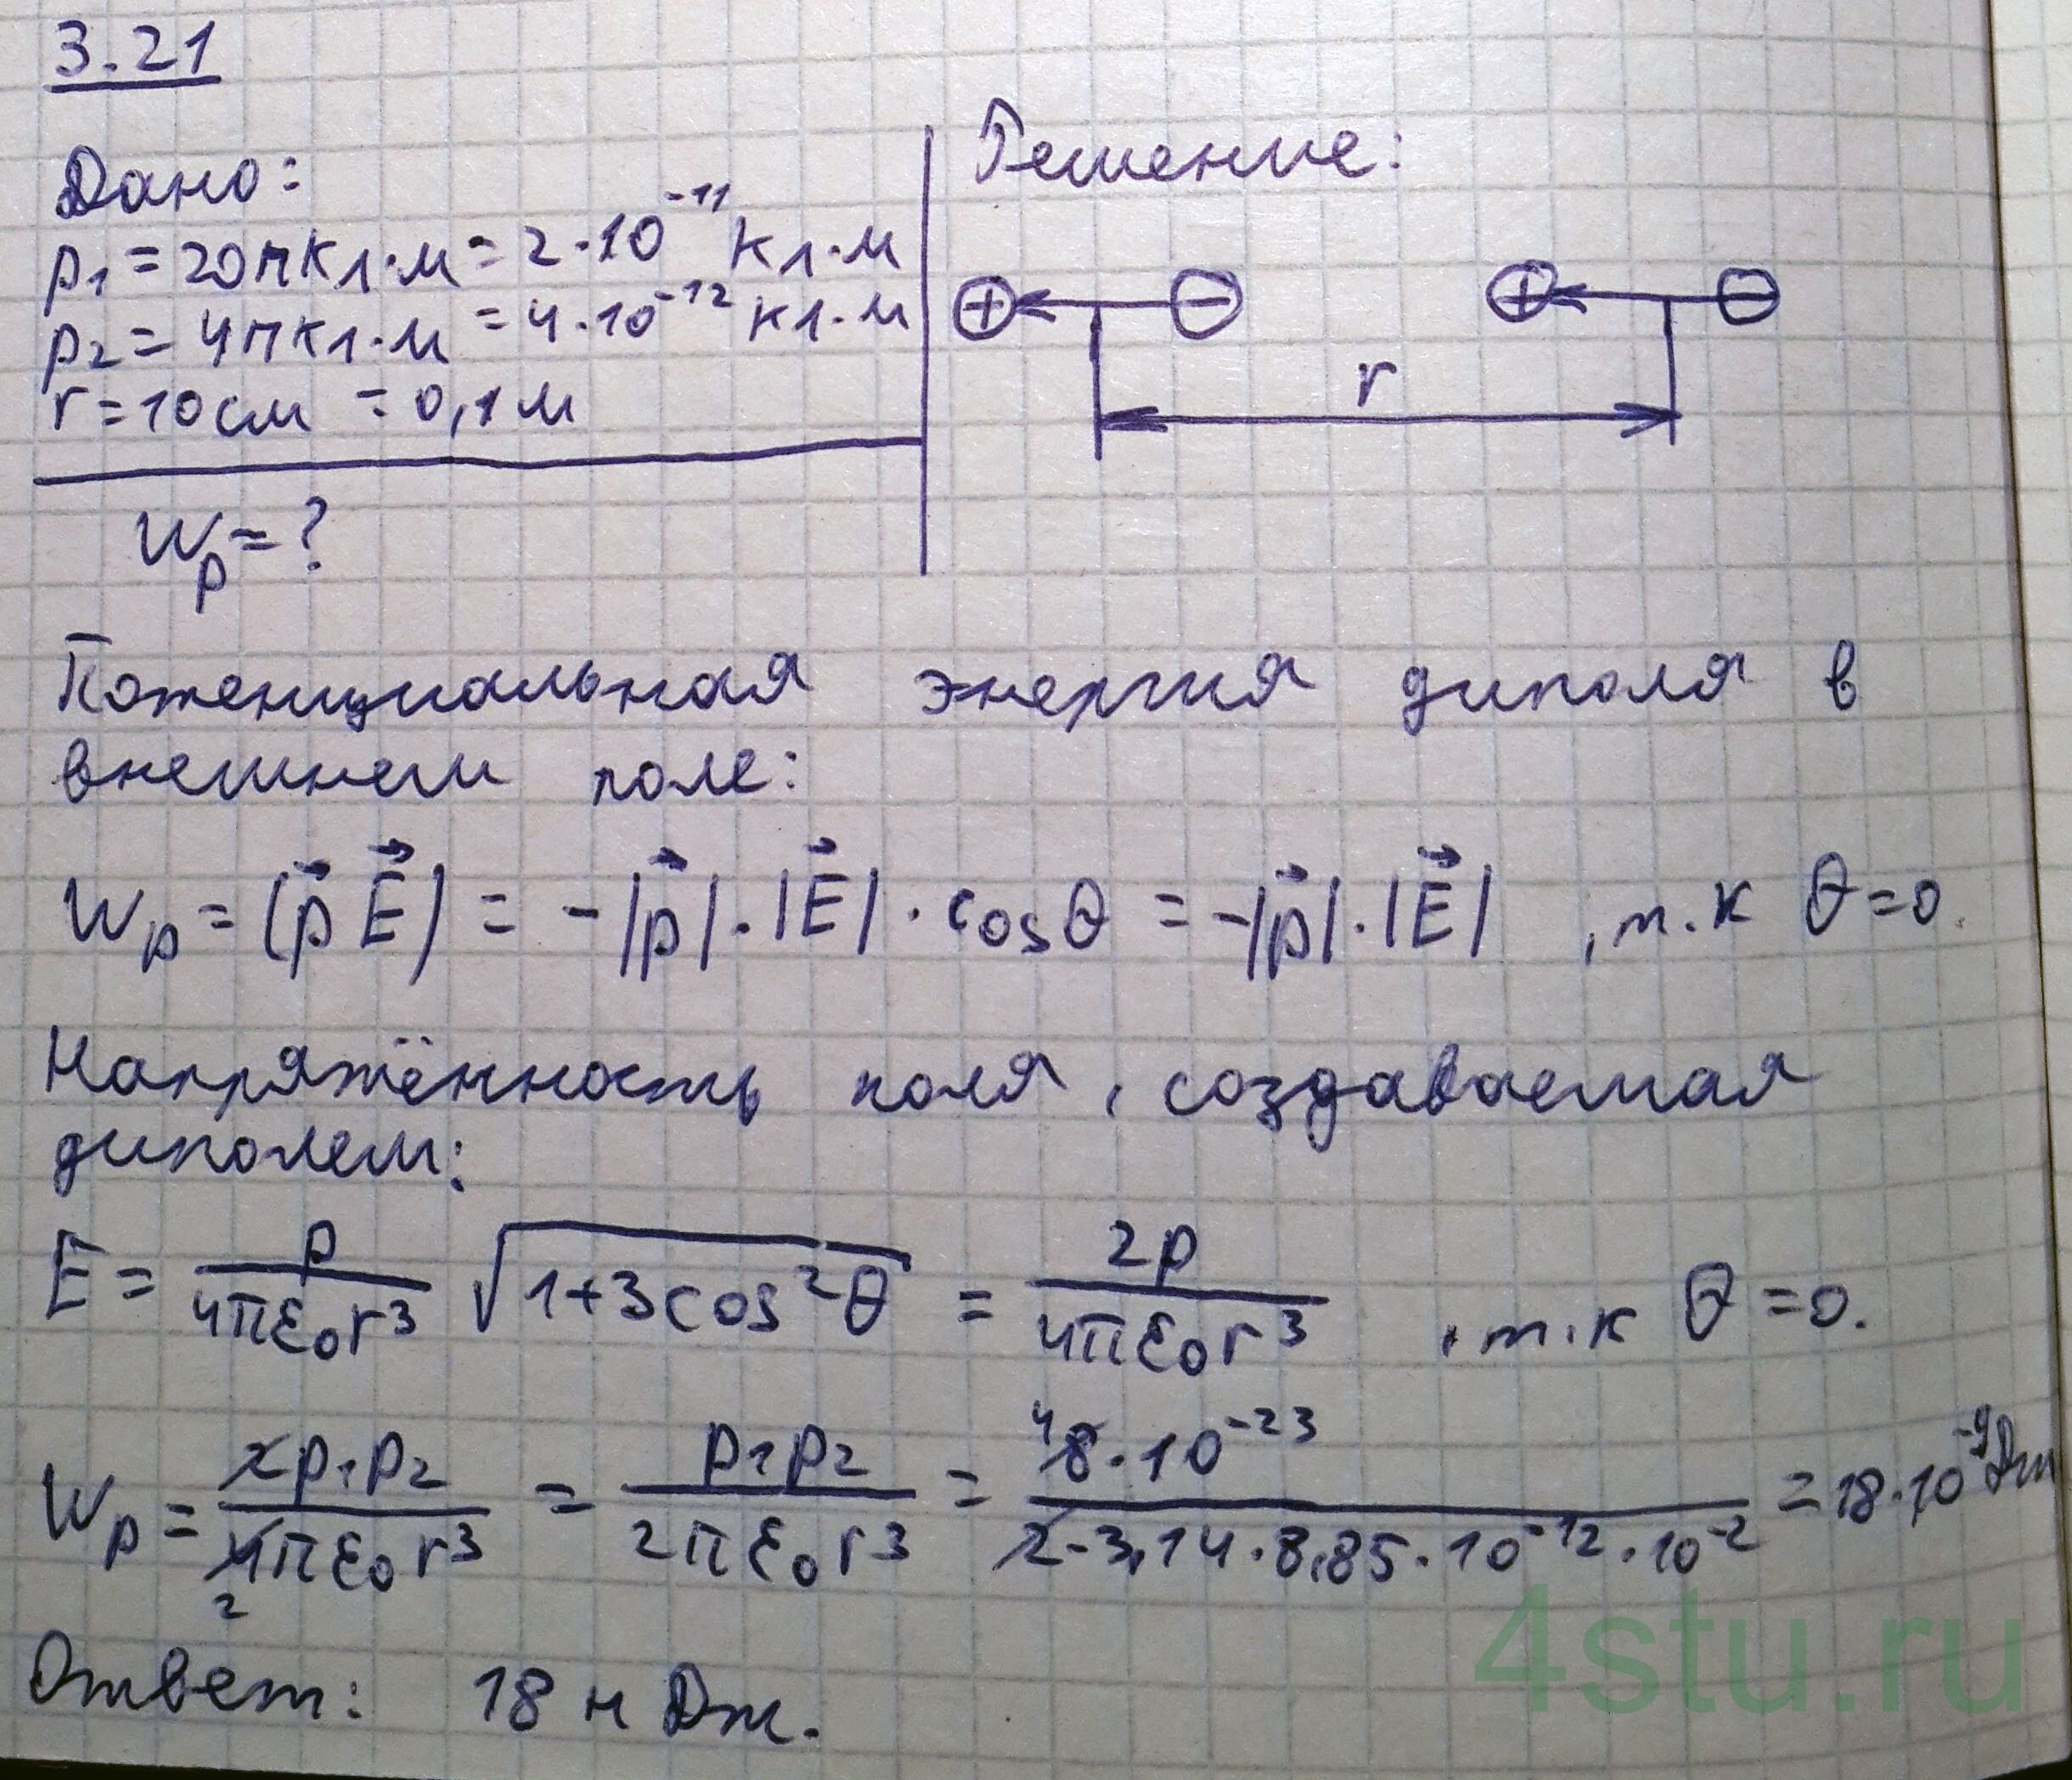 3.21
Дано:
p₁ = 20пКл·м = 2·10⁻¹¹ Кл·м
p₂ = 4пКл·м = 4·10⁻¹² Кл·м
r = 10см = 0,1м
Wₚ = ?
Решение:
+ − + −
r
Потенциальная энергия диполя в
внешнем поле:
Wₚ = (p⃗ E⃗) = −|p⃗|·|E⃗|·cosθ = −|p⃗|·|E⃗| , т.к θ=0.
Напряжённость поля, создаваемая
диполем:
E = p/(4πε₀r³) √(1+3cos²θ) = 2p/(4πε₀r³) , т.к θ=0.
Wₚ = 2p₁p₂/(4πε₀r³) = p₁p₂/(2πε₀r³) = 8·10⁻²³/(2·3,14·8,85·10⁻¹²·10⁻²) = 18·10⁻⁹Дж
Ответ: 18 нДж.
4stu.ru